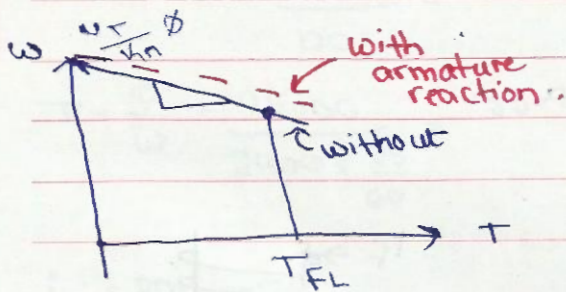 ω
VT
Km ϕ
with
armature
reaction.
without
T
T_FL